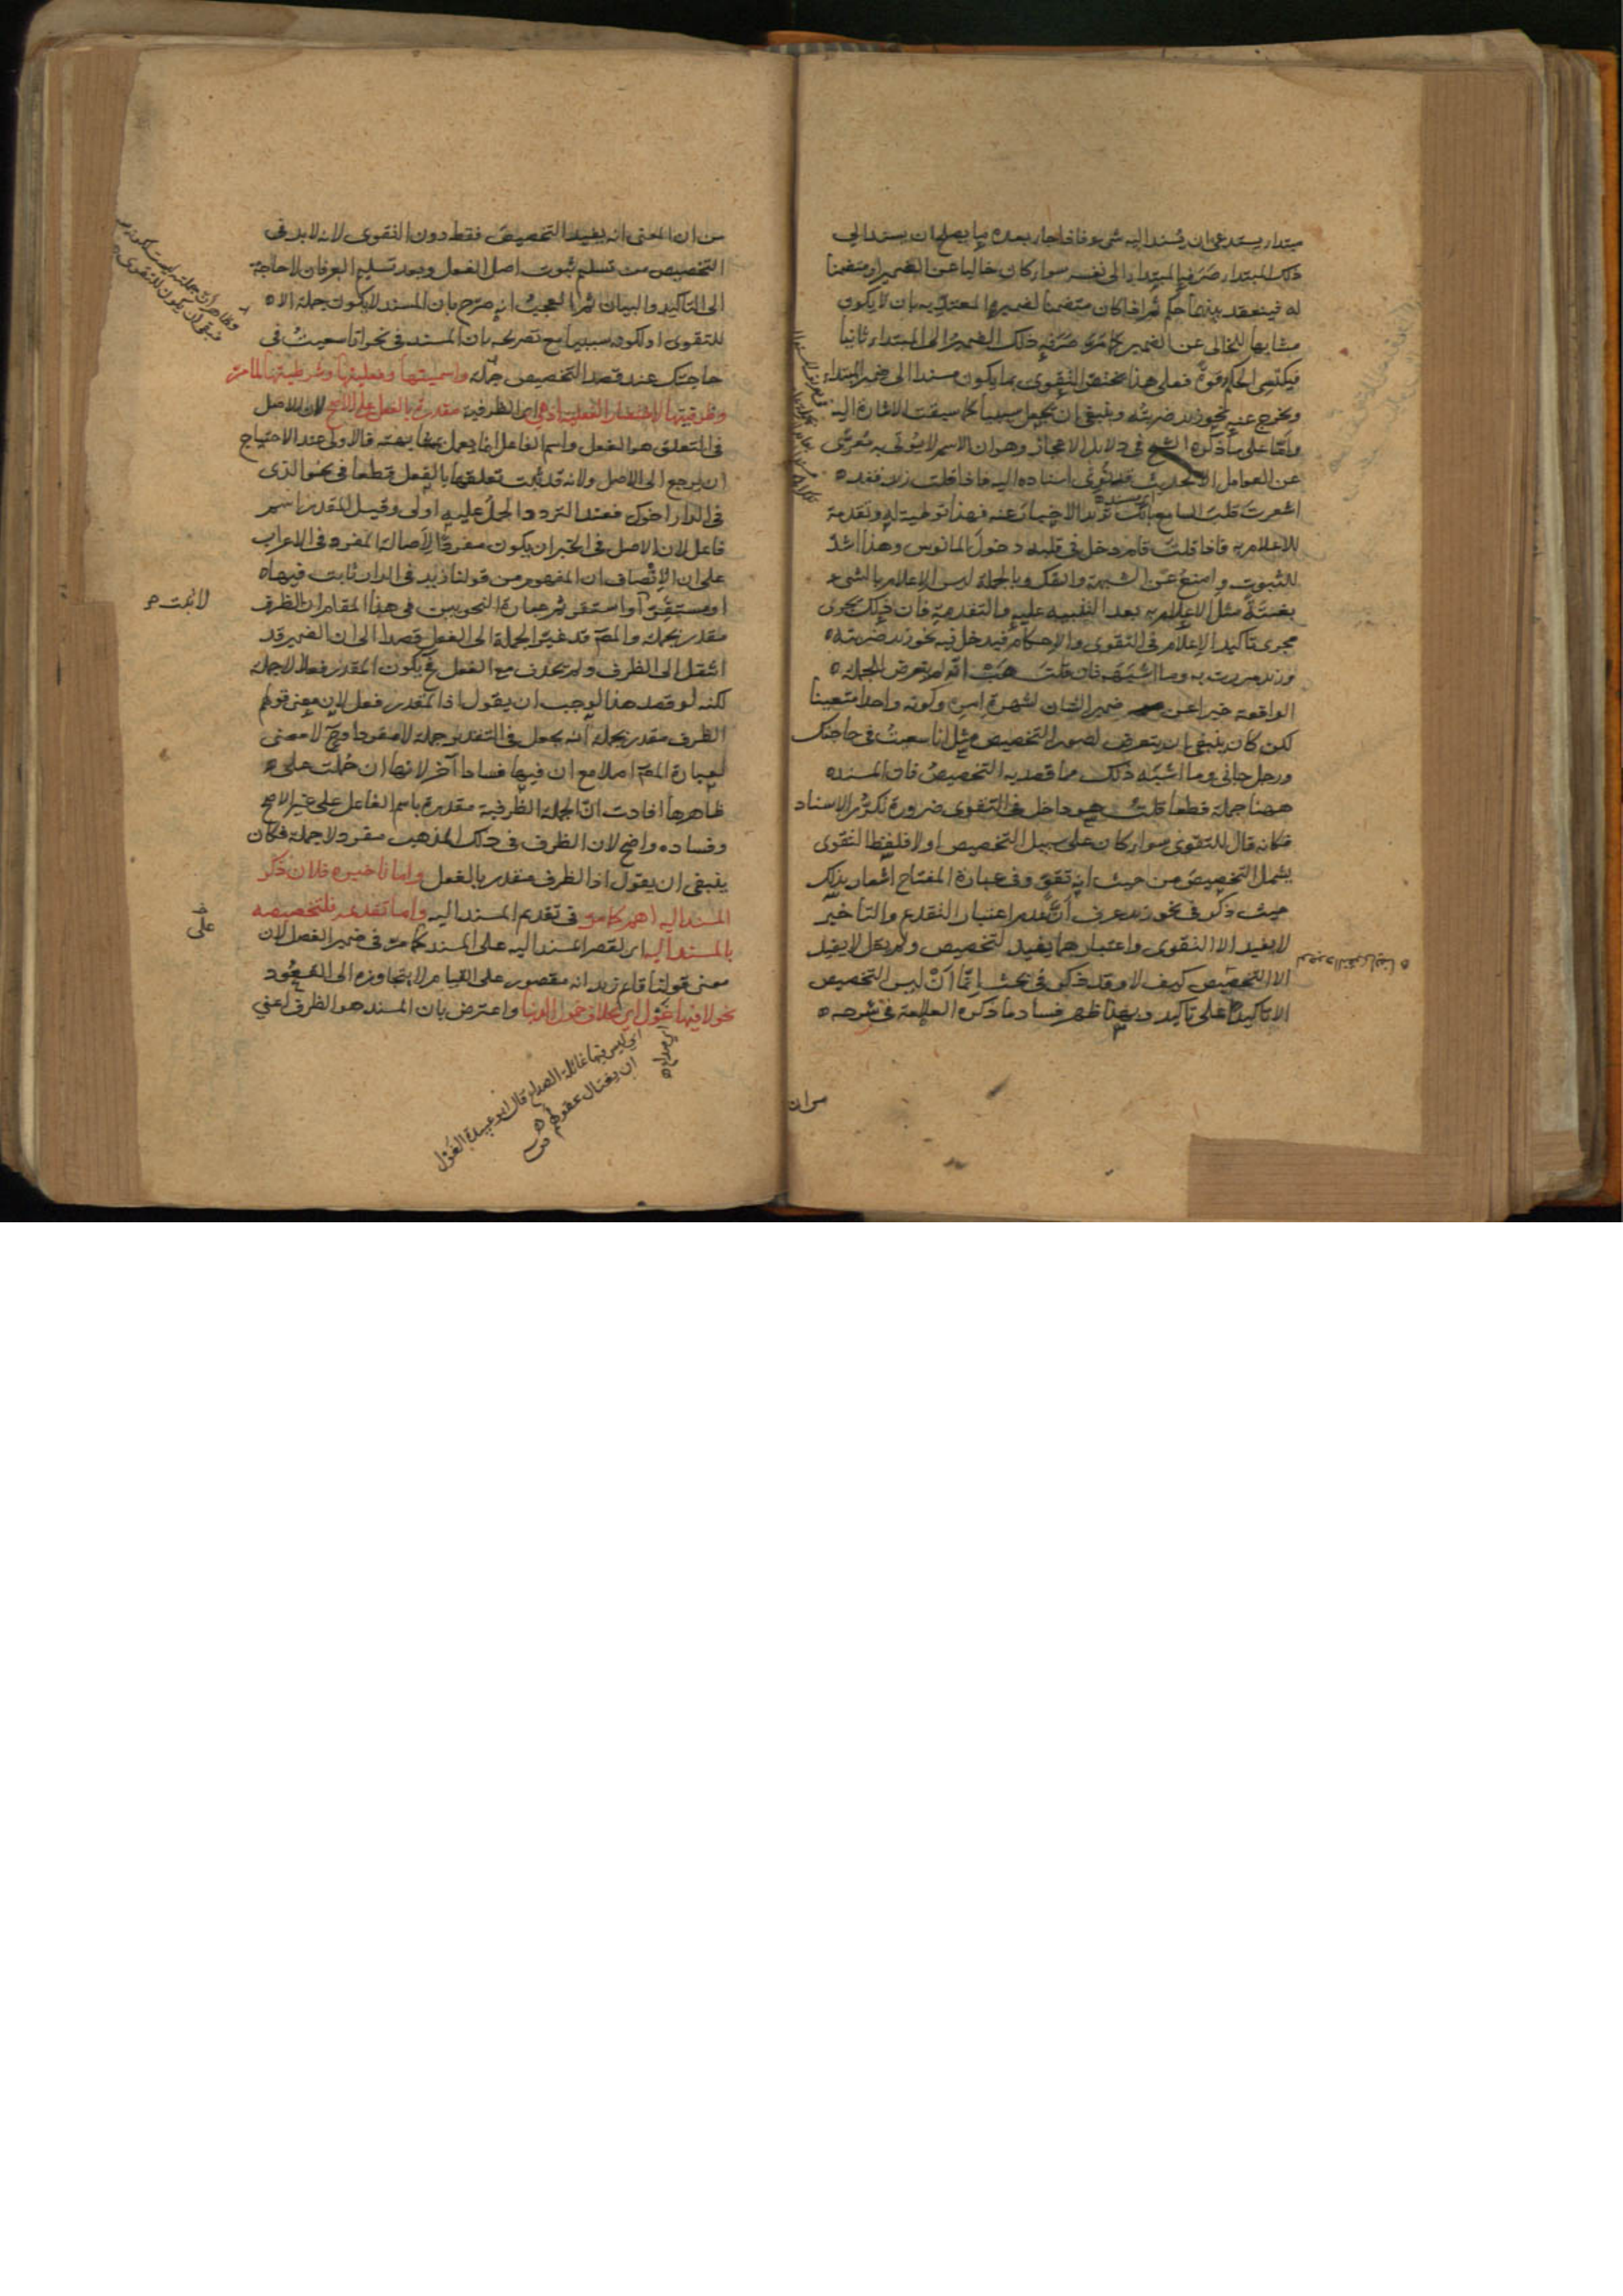 مبتداء يستدعي ان يسند اليه شئ فاذا جاء بعده ما يصلح ان يسند الى
ذلك المبتداء صرفه المبتداء الى نفسه سواء كان خاليا عن الضمير او متضمنا
له فينعقد بينهما حكم ثم اذا كان متضمنا لضميره المعتد به بان لا يكون
مشابها للخالى عن الضمير كما مر صرفه ذلك الضمير الى المبتداء ثانيا
فيكتسى الحكم قوة فعلى هذا يختص التقوى بما يكون مسندا الى ضمير المبتداء
ويخرج عنه نحو زيد ضربته وينبغى ان يجعل سببيا كما سبقت الاشارة اليه
واما على ما ذكره الشيخ فى دلايل الاعجاز وهو ان الاسم لا يؤتى به معرى
عن العوامل الا لحديث قد نوى اسناده اليه فاذا قلت زيد فقد
اشعرت قلب السامع بانك تريد الاخبار عنه فهذا توطية له وتقدمة
للاعلام به فاذا قلت قام دخل فى قلبه دخول المانوس وهذا اشد
للثبوت وامنع عن الشبهة والشك وبالجملة ليس الاعلام بالشئ
بغتة مثل الاعلام به بعد التنبيه عليه والتقدمة فان ذلك يجرى
مجرى تاكيد الاعلام فى التقوى والاحكام فيدخل فيه نحو زيد ضربته
وزيد مررت به وما اشبهه فان قلت هب انه لم يتعرض للجملة
الواقعة خبرا عن ضمير الشان لشهرة امره وكونه واحدا متعينا
لكن كان ينبغى ان يتعرض لصور التخصيص مثل انا سعيت فى حاجتك
ورجل جانى وما اشبه ذلك مما قصد به التخصيص فان المسند
ههنا جملة قطعا قلت هو داخل فى التقوى ضرورة تكرر الاسناد
فكانه قال للتقوى سواء كان على سبيل التخصيص او لا فلفظ التقوى
يشمل التخصيص من حيث انه تقو وفى عبارة المفتاح اشعار بذلك
حيث ذكر فى نحو زيد عرف ان عدم اعتبار التقديم والتاخير
لا يفيد الا التقوى واعتبارهما يفيد التخصيص ولم يقل لا يفيد
الا التخصيص كيف لا وقد ذكر فى بحث انما ان ليس التخصيص
الا تاكيدا على تاكيد وبهذا ظهر فساد ما ذكره العلامة فى شرحه
من ان
من ان المعنى انه يفيد التخصيص فقط دون التقوى لانه لا بد فى
التخصيص من تسليم ثبوت اصل الفعل وبعد تسليم العرفان لا حاجة
الى التاكيد والبيان ثم العجب انه صرح بان المسند لا يكون جملة الا
للتقوى او لكونه سببيا مع تصريحه بان المسند فى نحو انا سعيت فى
حاجتك عند قصد التخصيص جملة واسميتها وفعليتها وشرطيتها لما مر
وظرفيتها لاختصار الفعلية اذ هى اى الظرفية مقدرة بالفعل على الاصح لان الاصل
فى التعلق هو الفعل واسم الفاعل انما يعمل بمشابهته فالاولى عند الاحتياج
ان يرجع الى الاصل ولانه قد ثبت تعلقها بالفعل قطعا فى نحو الذى
فى الدار اخوك فعند التردد الحمل عليه اولى وقيل المقدر اسم
فاعل لان الاصل فى الخبر ان يكون مفردا لاصالة المفرد فى الاعراب
على ان الانصاف ان المفهوم من قولنا زيد فى الدار ثابت فيها
او مستقر لا ثبت او استقر ثم عبارة النحويين فى هذا المقام ان الظرف
مقدر بجملة والمص قد غير الجملة الى الفعل قصدا الى ان الضمير قد
انتقل الى الظرف ولم يحذف مع الفعل فح يكون المقدر فعلا لا جملة
لكنه لو قصد هذا لوجب ان يقول اذ المقدر فعل لان معنى قولهم
الظرف مقدر بجملة انه يجعل فى التقدير جملة لا مفردا وح لا معنى
لعبارة المص اصلا مع ان فيها فسادا آخر لانها ان حملت على
ظاهرها افادت ان الجملة الظرفية مقدرة باسم الفاعل على غير الاصح
وفساده واضح لان الظرف فى ذلك المذهب مفرد لا جملة فكان
ينبغى ان يقول اذ الظرف مقدر بالفعل واما تاخيره فلان ذكر
المسند اليه اهم كما مر فى تقديم المسند اليه واما تقديمه فلتخصيصه
بالمسند اليه اى لقصر المسند اليه على المسند كما مر فى ضمير الفصل لان
معنى قولنا قايم زيد انه مقصور على القيام لا يتجاوزه الى القعود
نحو لا فيها غول اى بخلاف خمور الدنيا واعترض بان المسند هو الظرف اعنى
اى ليس فيها غائلة الصداع قال ابو عبيدة الغول
ان يغتال عقولهم